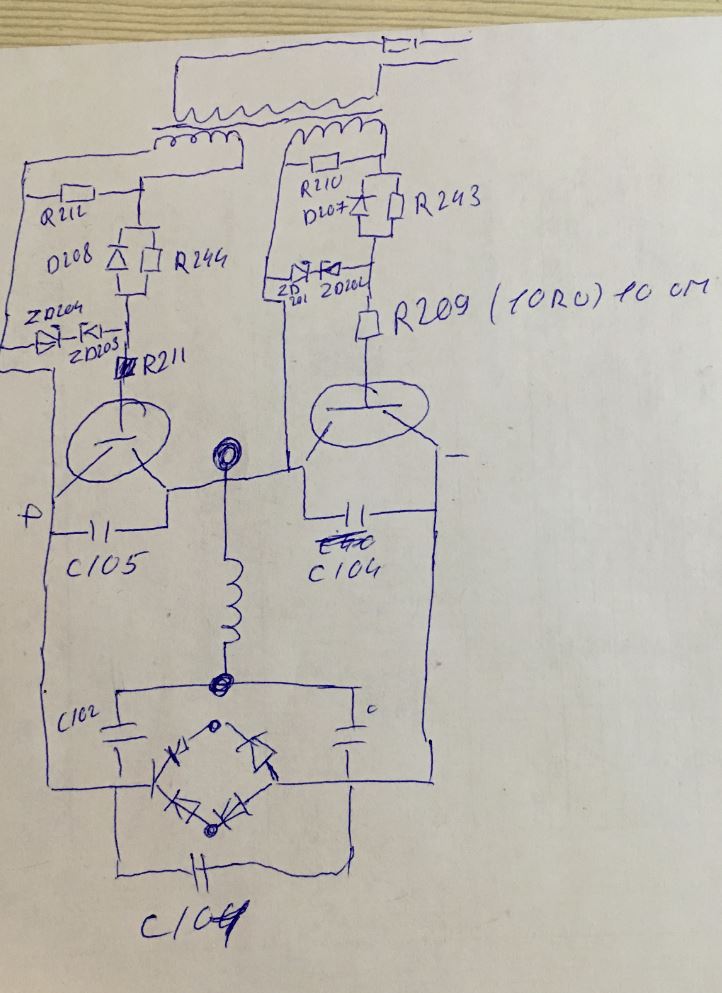 R212
R210
D207
R243
D208
R244
ZD204
ZD203
ZD
201
ZD202
R209 (10R0) 10 OM
R211
C105
C104
C102
C
C104